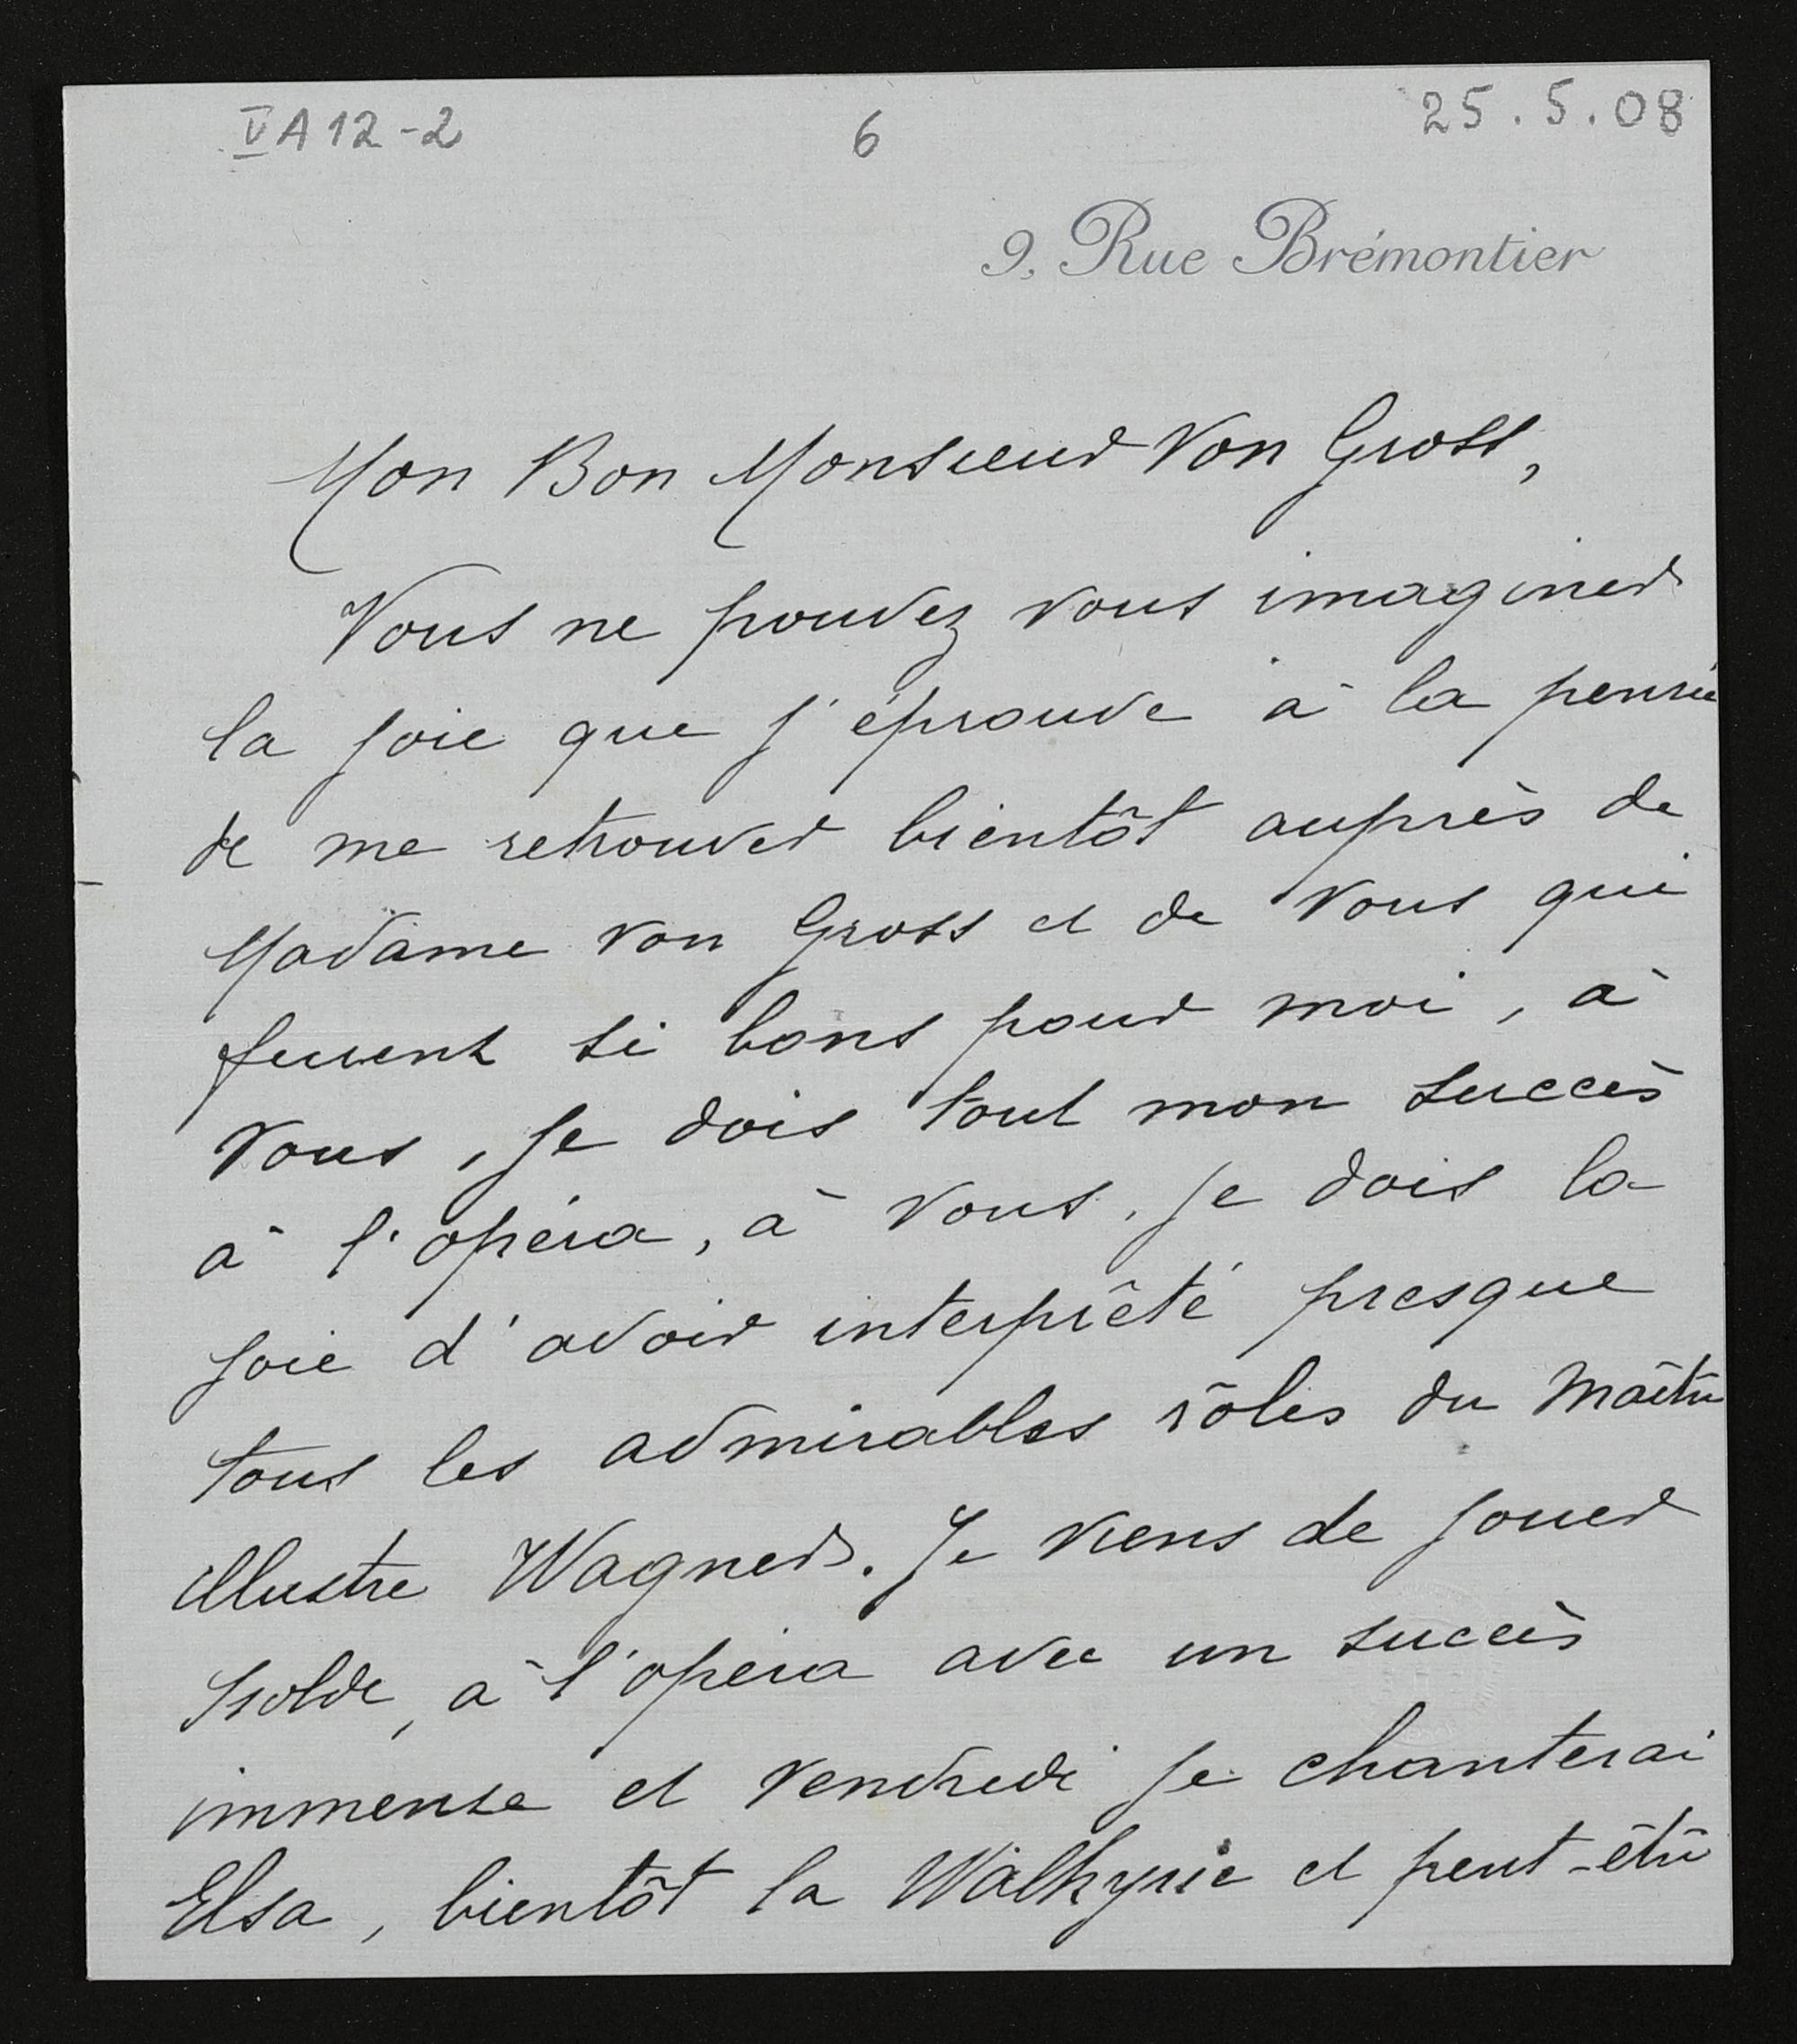 V A 12-2 6 25.5.08
9, Rue Brémontier
Mon Bon Monsieur Von Gross,
Vous ne pouvez vous imaginer
la joie que j'éprouve à la pensée
de me retrouver bientôt auprès de
Madame von Gross et de Vous qui
furent si bons pour moi, à
Vous, je dois tout mon succès
à l'opéra, à Vous, je dois la
joie d'avoir interprêté presque
tous les admirables rôles du Maître
illustre Wagner. Je viens de jouer
Isolde, à l'opéra avec un succès
immense et Vendredi je chanterai
Elsa, bientôt la Walkyrie et peut-être